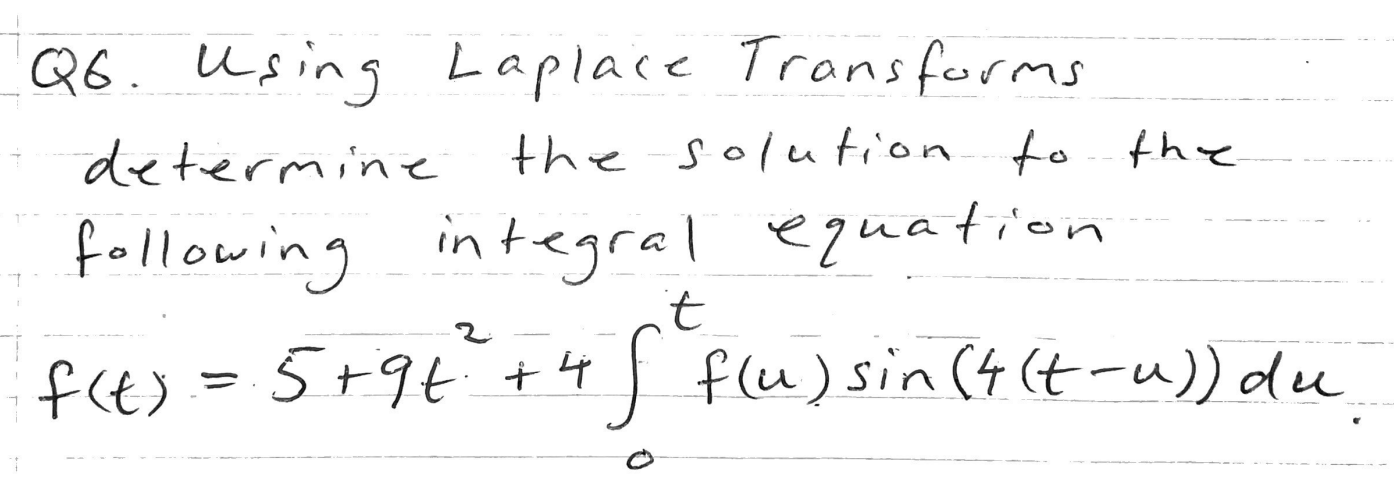 Q6. Using Laplace Transforms
determine the solution to the
following integral equation
f(t) = 5+9t² + 4 ∫₀ᵗ f(u) sin(4(t-u)) du.